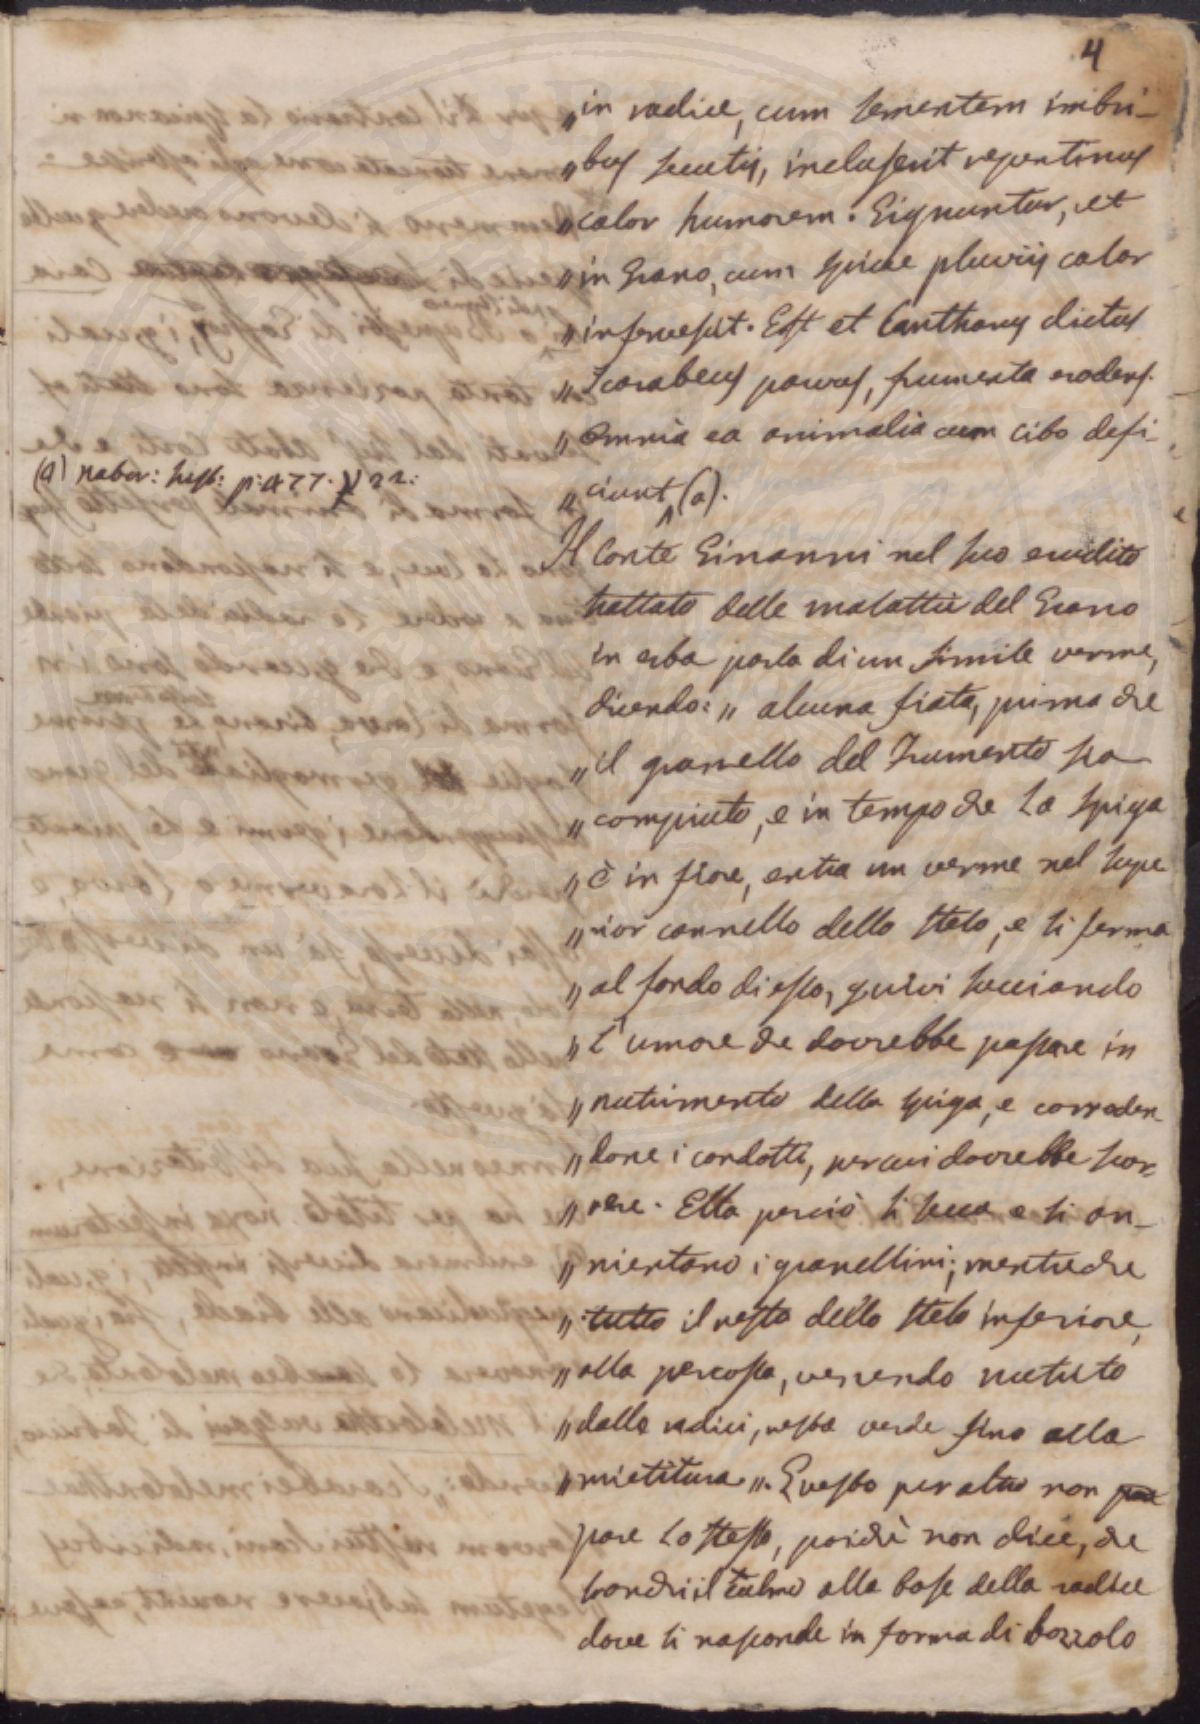 4
„in radice, cum sementem imbri-
„bus secutis, incluserit repentinus
„calor humorem. Gignuntur, et
„in Grano, cum spicae pluviis calor
„infervescit. Est et Cantharus dictus
„Scarabeus parvus, frumenta erodens.
„Omnia ea animalia cum cibo defi-
„ciunt (a).
(a) p: 477.
Il Conte Ginanni nel suo erudito
trattato delle malattie del Grano
in erba parla di un simile verme,
dicendo: „ alcuna fiata, prima che
„il granello del Frumento sia
„compiuto, e in tempo che la spiga
„è in fiore, entra un verme nel supe
„rior cannello dello stelo, e si ferma
„al fondo di esso, quivi succiando
„l'umore che dovrebbe passare in
„nutrimento della spiga, e corroden-
„done i condotti, per cui dovrebbe scor-
„rere. Ella perciò si secca e si an-
„nientano i granellini; mentreche
„tutto il resto dello stelo inferiore,
„alla percossa, venendo nutrito
„dalle radici, resta verde fino alla
„mietitura„. Questo per altro non
pare lo stesso, poichè non dice, che
tronchi il culmo alla base della radice
dove si nasconde in forma di bozzolo